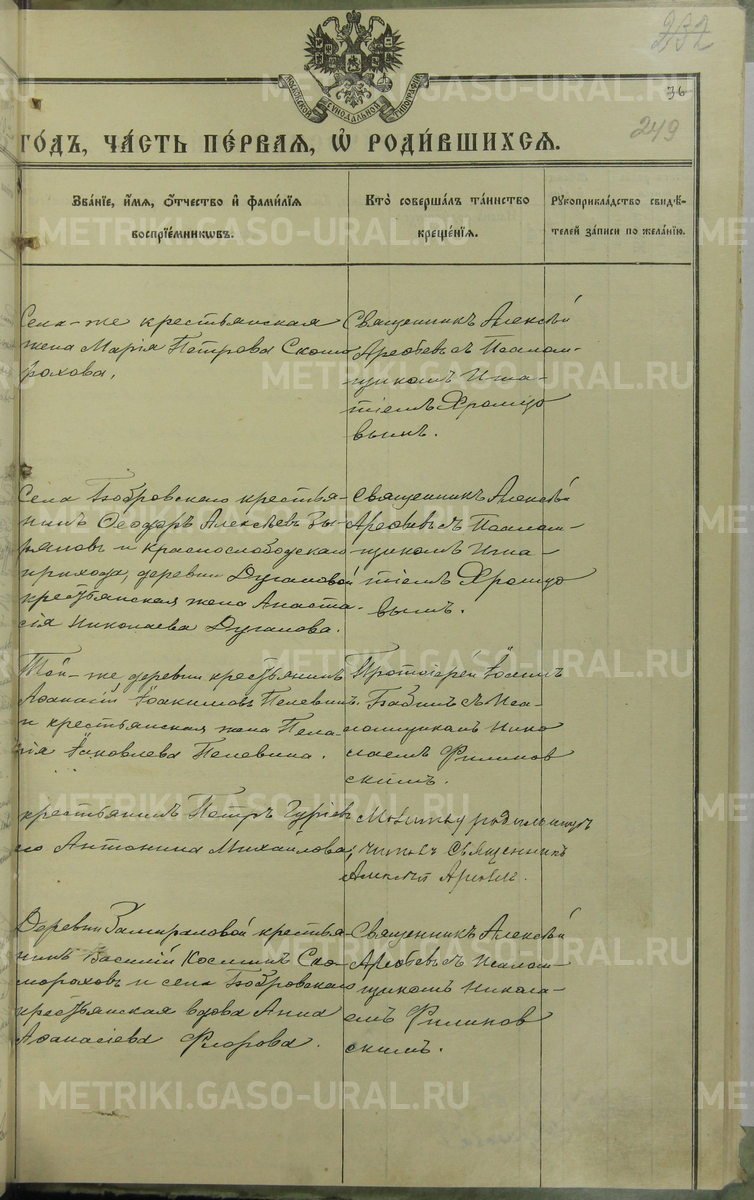 232
МОСКОВСКОЙ СѴНОДАЛЬНОЙ ТИПОГРАФІИ
36
249
ГО́ДЪ, ЧА́СТЬ ПЕ́РВАЯ, Ѡ҆ РОДИ́ВШИХСЯ.
Зва́нїе, и҆́мя, ѻ҆́тчество и҆ фами́лїя
воспрїе́мникѡвъ.
Кто̀ соверша́лъ та́инство
креще́нїя.
Рꙋкоприкла́дство свидѣ́-
телей за́писи по жела́нїю.
Села-же крестьянская
жена Марія Петрова Скомо
рохова.
Священникъ Алексѣй
Арефьевъ съ Псалом-
щикомъ Игна-
тіемъ Хромцо
вымъ.
Села Бобровскаго крестья-
нинъ Ѳеодоръ Алексѣевъ Зы-
ряновъ и Краснослободскаго
прихода, деревни Дугановой
крестьянская жена Анаста-
сія Николаева Дуганова.
Священникъ Алексѣй
Арефьевъ съ Псалом-
щикомъ Игна-
тіемъ Хромцо
вымъ.
Той-же деревни крестьянинъ
Аѳанасій Іоакимовъ Пелевинъ
и крестьянская жена Пела-
гія Іаковлева Пелевина.
Протоіерей Іосифъ
Бабинъ съ Пса-
ломщикомъ Нико
лаемъ Филинов
скимъ.
крестьянинъ Петръ Гурьевъ
его Антонина Михаилова;
Молитву родильницѣ
читалъ Священникъ
Алексѣй Арефьевъ.
Деревни Замираловой крестья-
нинъ Василій Космин Ско-
мороховъ и села Бобровскаго
крестьянская вдова Анна
Аѳанасіева Флорова.
Священникъ Алексѣй
Арефьевъ съ Псалом-
щикомъ Никола-
емъ Филинов
скимъ.
METRIKI.GASO-URAL.RU